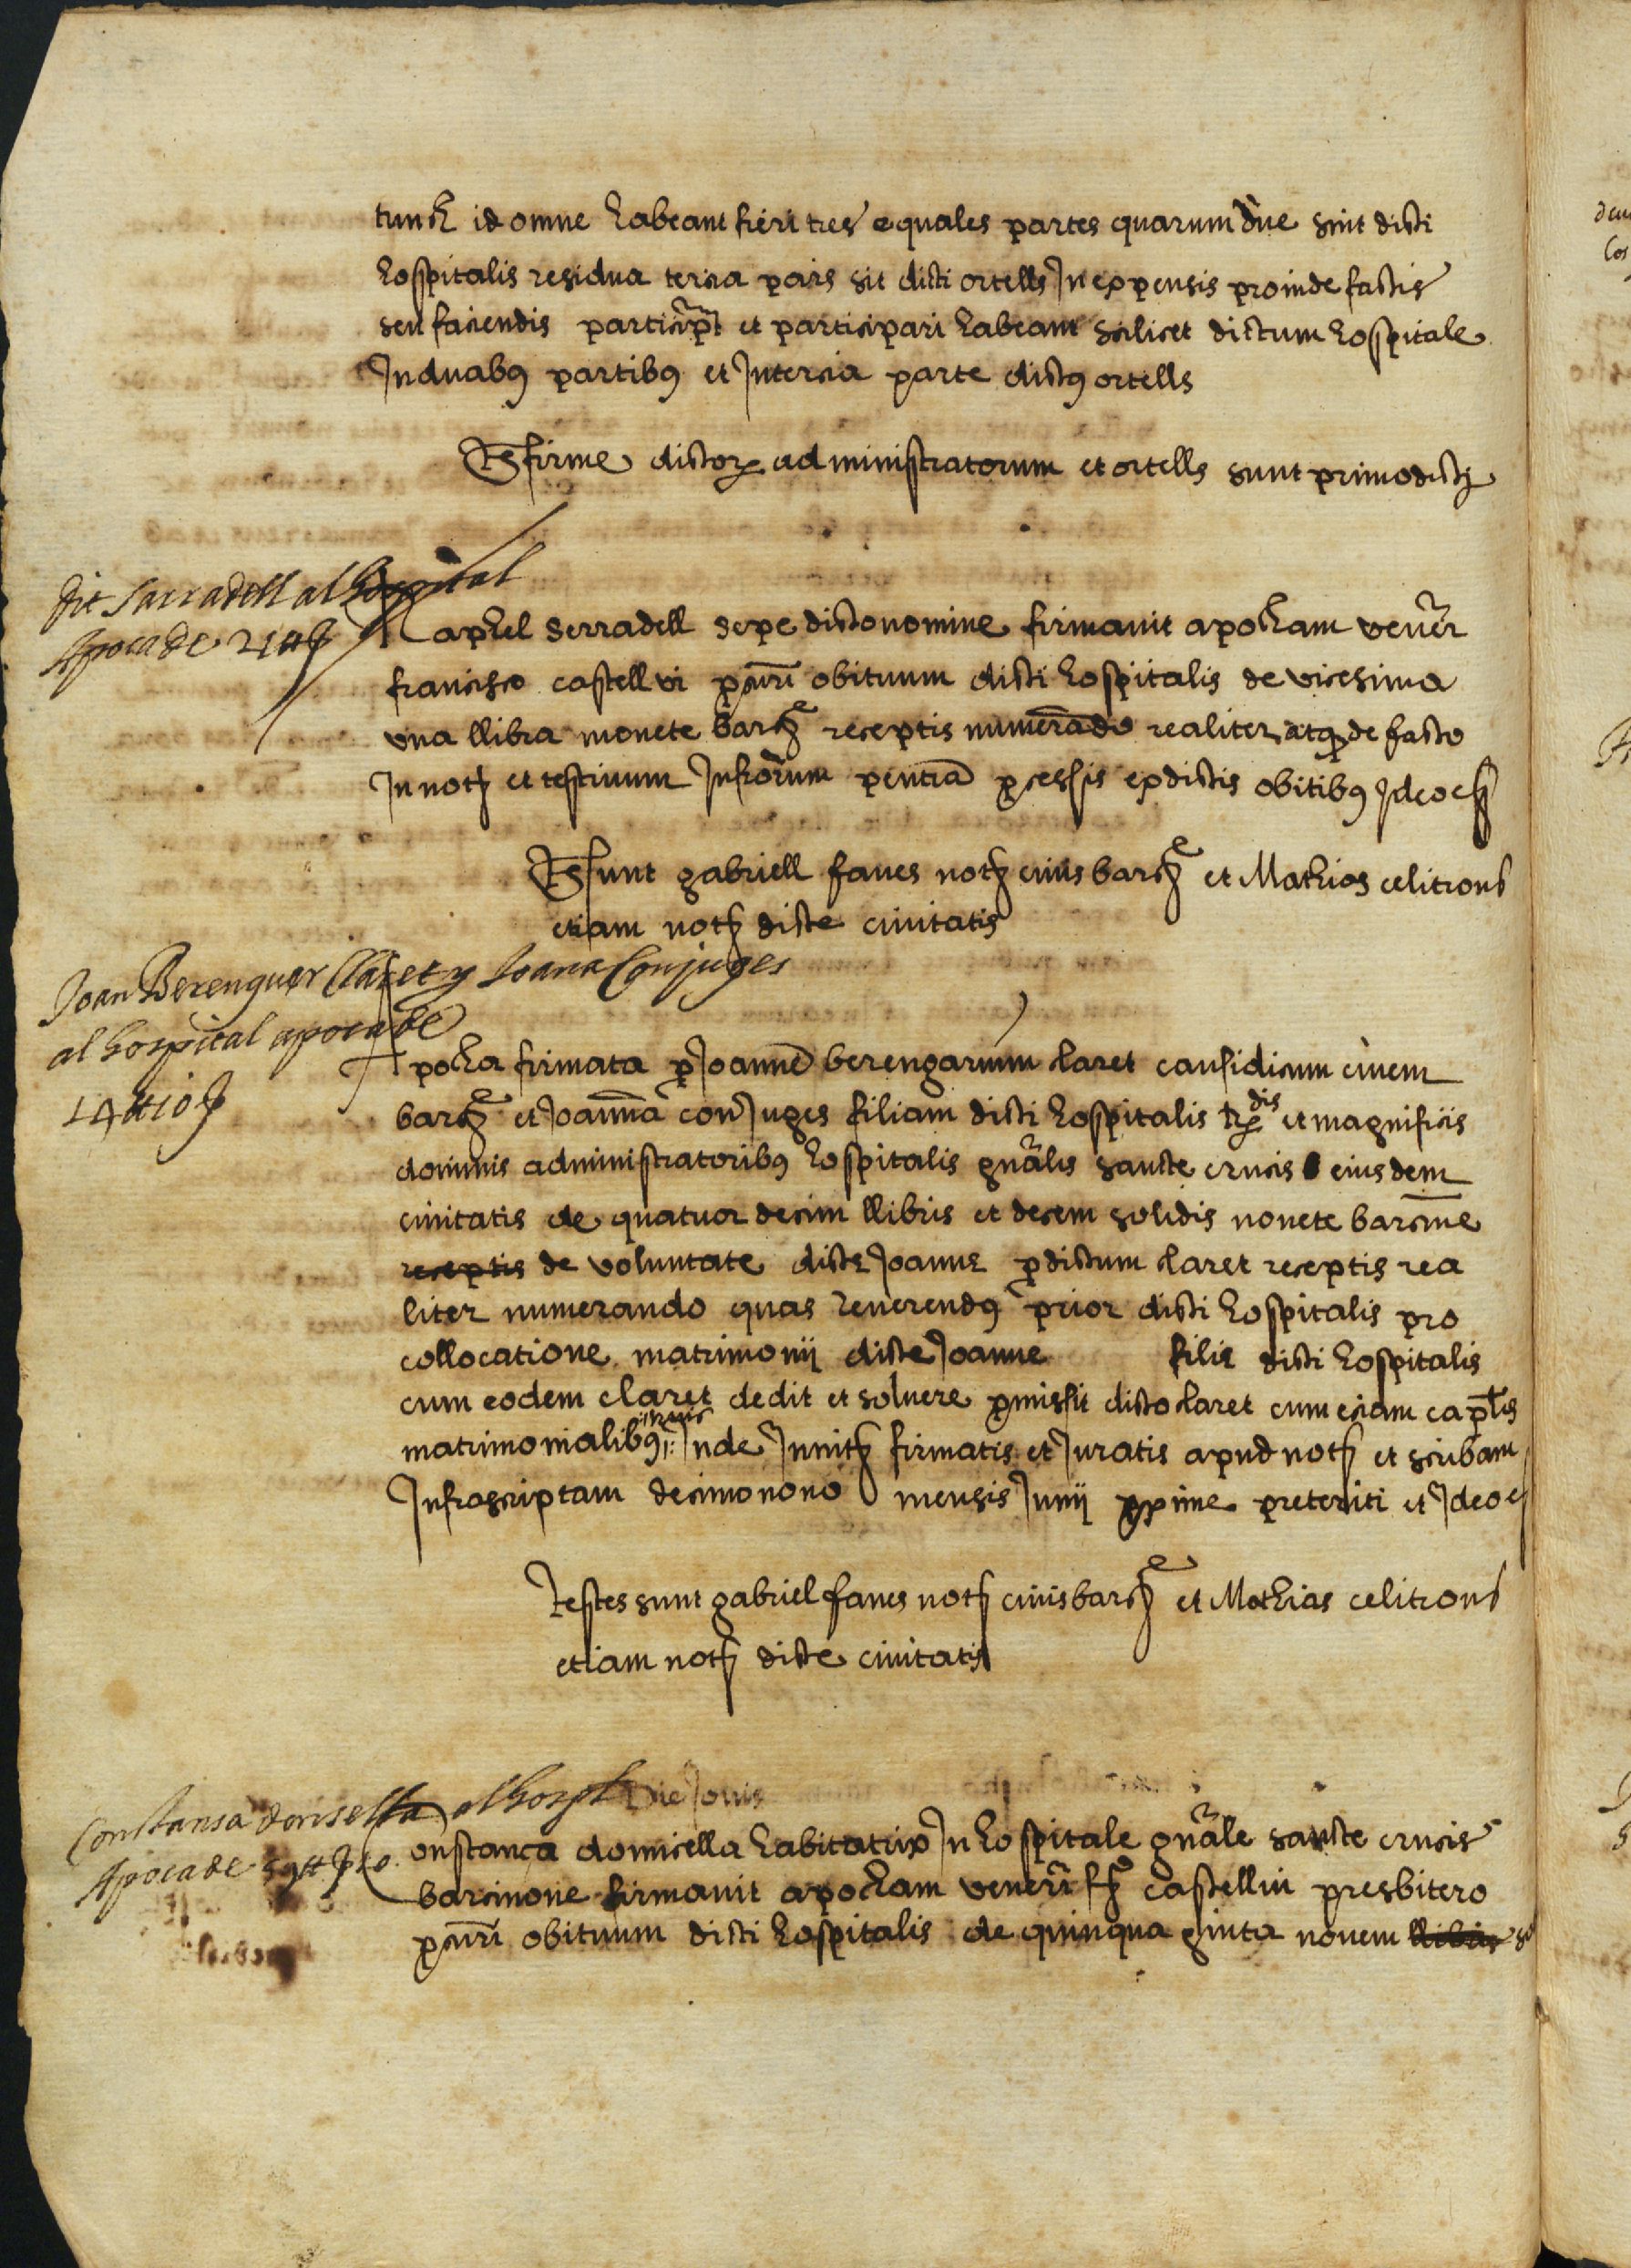 tunch id omne habeant fieri tres equales partes quarum due sint dicti
hospitalis residua tercia pars sit dicti ortells In expensis proinde factis
seu faciendis et participari habeant scilicet dictum hospitale
In duabus partibus et In tercia parte dictus ortells
Ts firme dictorum administratorum et ortells sunt primo dicti
dit Sarradell al hospital
Apoca de 21 ₶
Raphel serradell sepe dicto nomine firmavit apocham venerī
francisco castellvi pcurī obituum dicti hospitalis de vicesima
una llibra monete barche receptis numerando realiter atque de facto
In noty et testium Infrorum pentia pcessis ex dictis obitibus Ideo etc
Ts sunt gabriell fanes noty civis barche et Mathias celitrons
etiam noty dicte civitatis
Joan Berenguer Claret y Joana Conjuges
al hospital apoca de
14 ₶ 10 ſ
Apocha firmata p Joannē berengarium claret causidicum civem
barche et Joannā conJuges filiam dicti hospitalis Rdis et magnificis
dominis administratoribus hospitalis gnālis sancte crucis eiusdem
civitatis de quatuor decim llibris et decem solidis monete barcīne
receptis de voluntate dicte Joanne p dictum claret receptis rea
liter numerando quas Reverendus prior dicti hospitalis pro
collocatione matrimonii dicte Joanne filie dicti hospitalis
cum eodem claret dedit et solvere pmissit dicto claret cum eciam capꝉis
matrimonialibus Inde Initis firmatis et Juratis apud noty et scribam
Infrascriptam decimo nono mensis Junii pxime preteriti et Ideo etc
Testes sunt gabriel fanes noty civis barche et Mathias celitrons
etiam noty dicte civitatis
Die Jovis
Constansa donsella al hospl
Apoca de 59 ₶ ſ 10
Constança domicella habitatrix In hospitale gnāle sancte crucis
barcinone firmavit apocham venerī castellvi presbitero
pcurī obituum dicti hospitalis de quinquaginta novem llibris